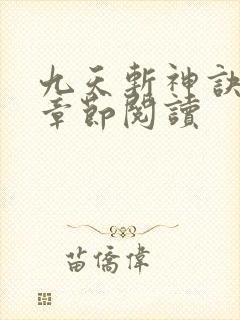 九天斬神訣
章節閱讀
苗僑偉